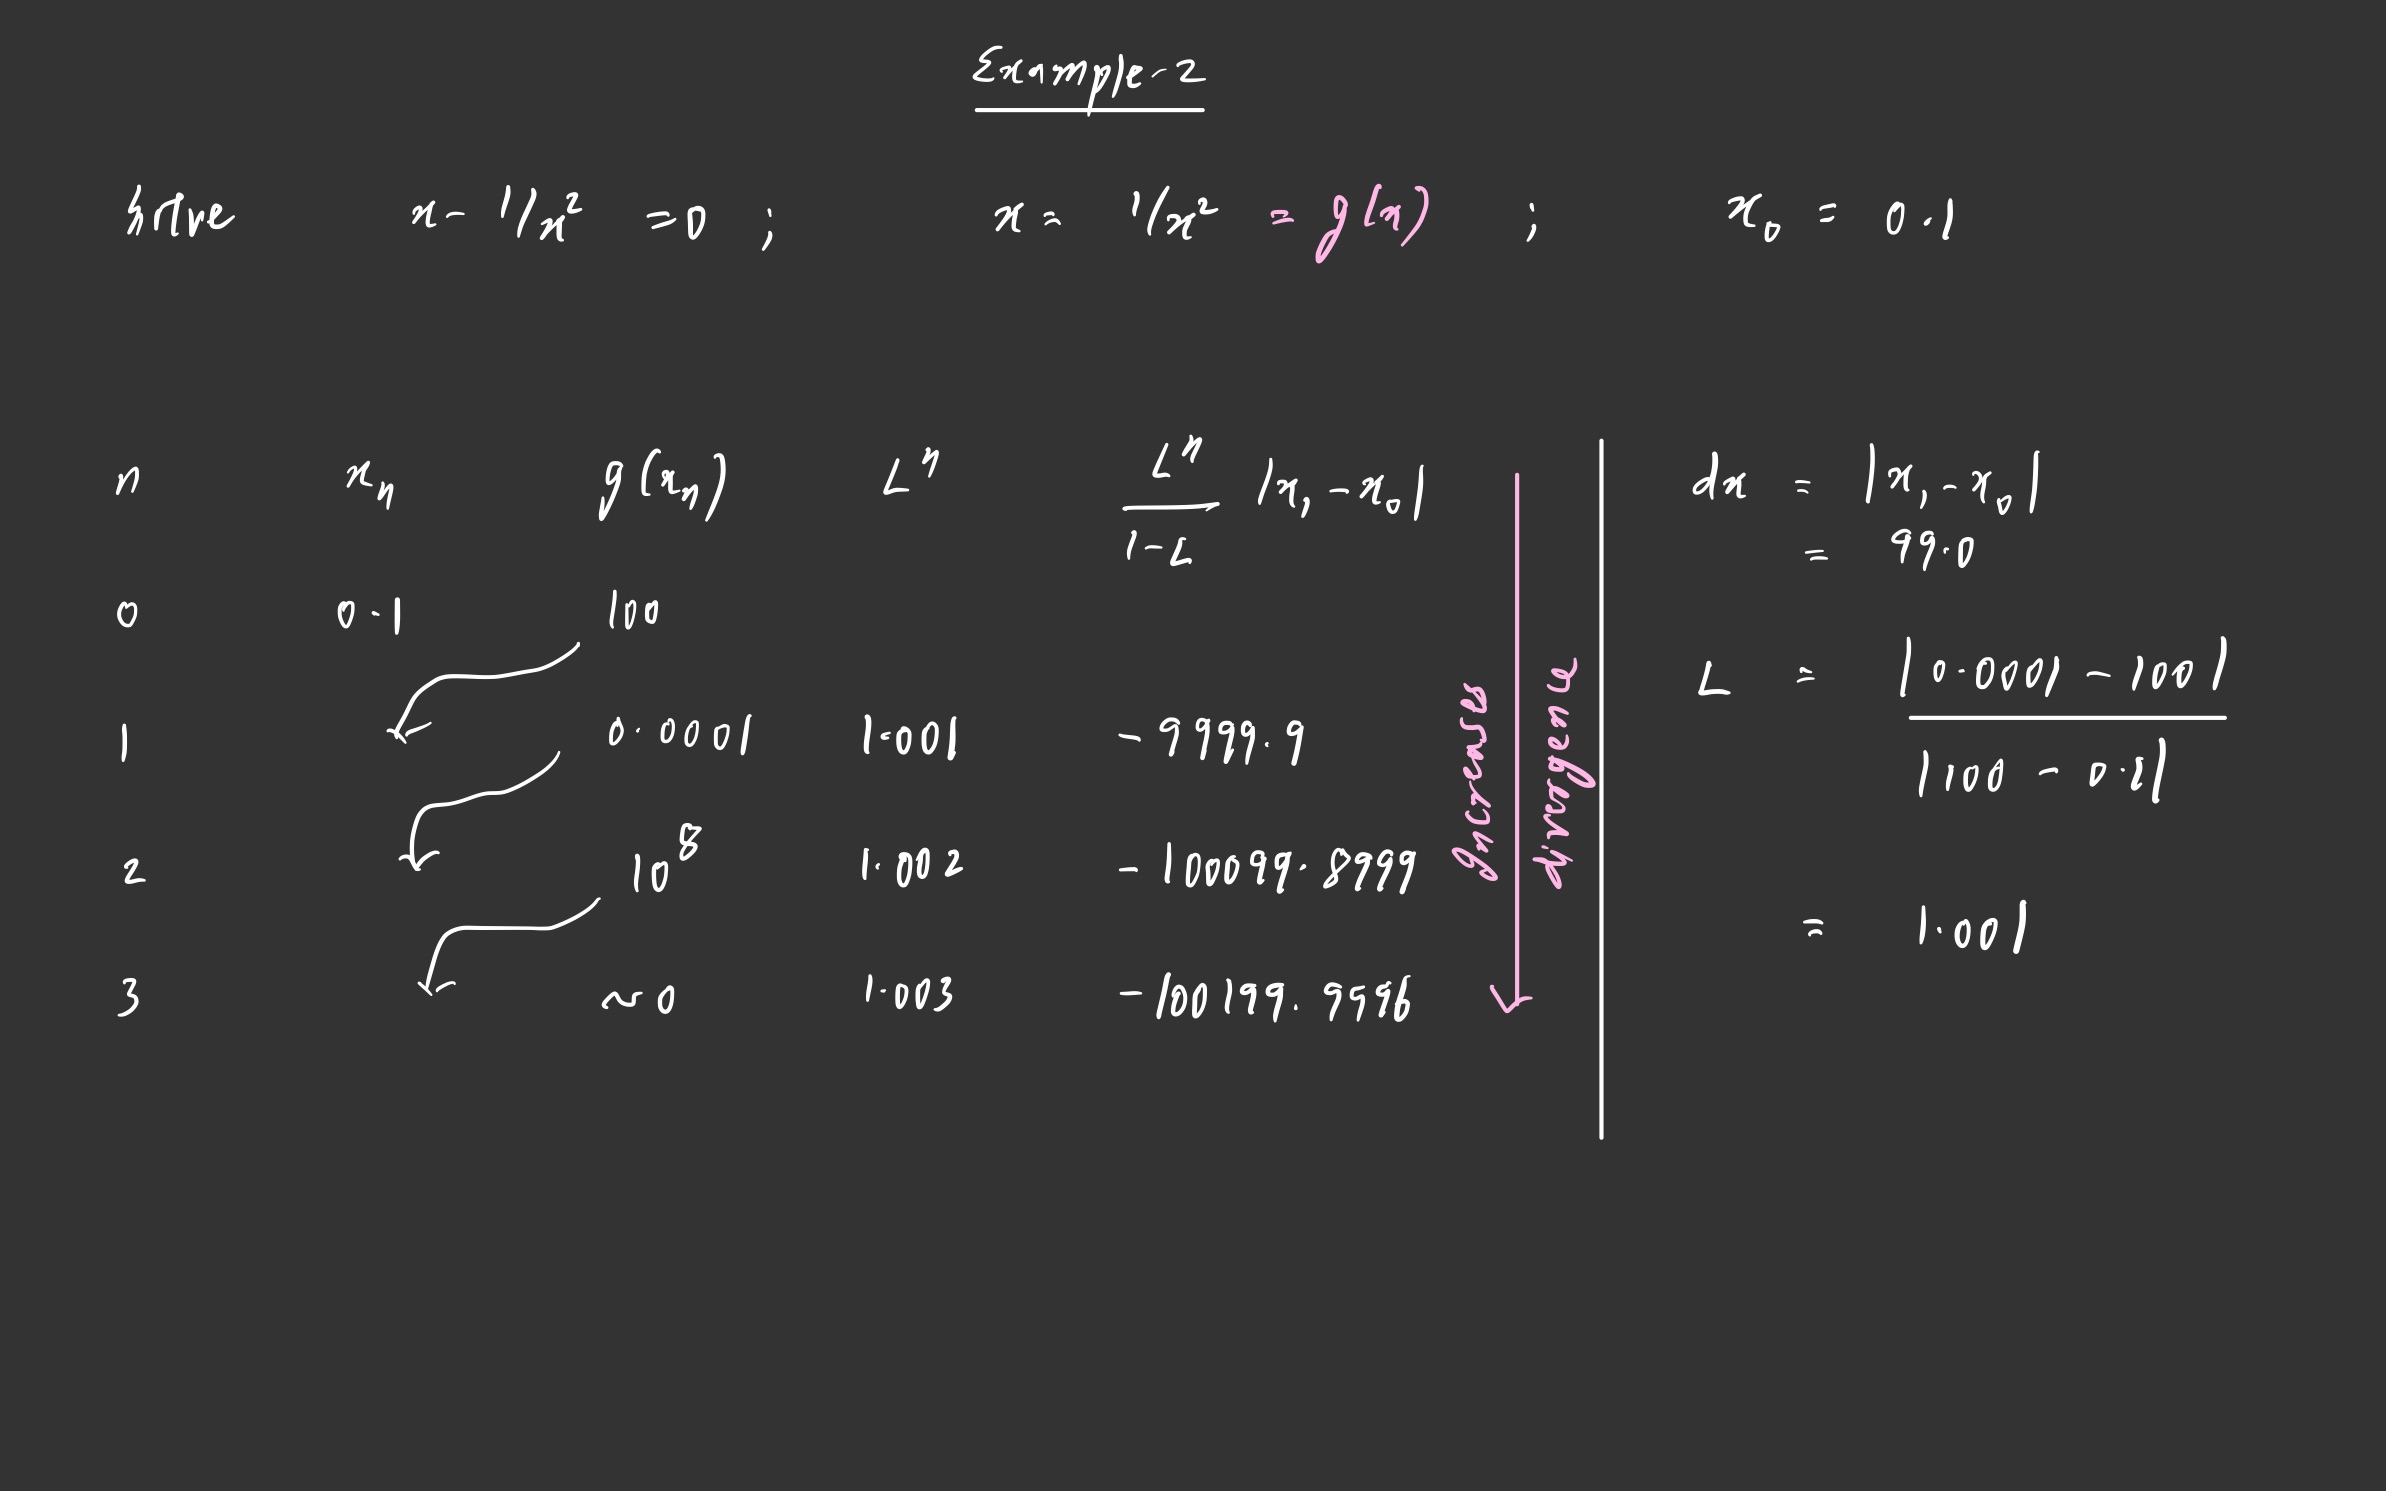 Example-2
Solve x - 1/x² = 0 ; x = 1/x² = g(x) ; x₀ = 0.1
n xₙ g(xₙ) Lⁿ Lⁿ/(1-L) |x₁ - x₀|
0 0.1 100
1 0.0001 1.001 -9999.9
2 10⁸ 1.002 -100099.8999
3 ~0 1.003 -100199.9596
Increases
divergence
dx = |x₁ - x₀|
= 99.0
L = |0.0001 - 100| / |100 - 0.1|
= 1.001